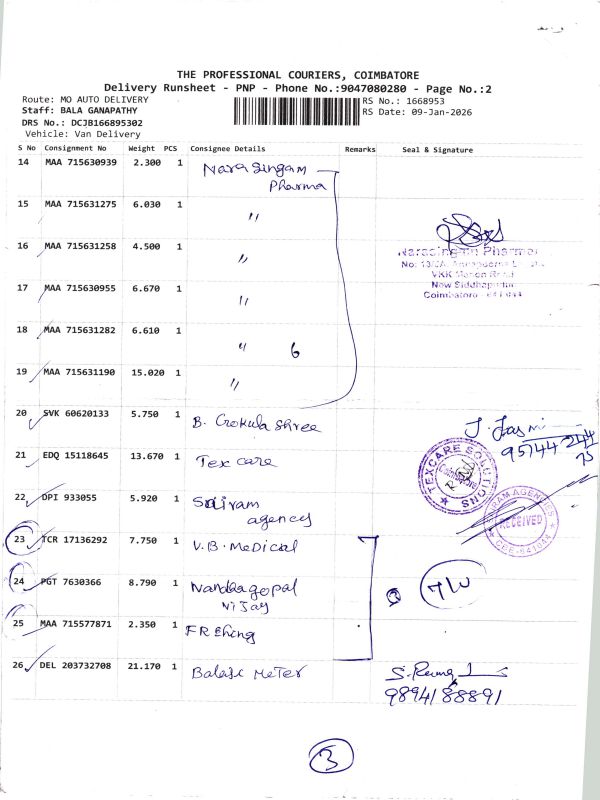 THE PROFESSIONAL COURIERS, COIMBATORE
Delivery Runsheet - PNP - Phone No.:9047080280 - Page No.:2
Route: MO AUTO DELIVERY
RS No.: 1668953
Staff: BALA GANAPATHY
RS Date: 09-Jan-2026
DRS No.: DCJB166895302
Vehicle: Van Delivery
S No Consignment No Weight PCS Consignee Details Remarks Seal & Signature
14 MAA 715630939 2.300 1 Narasingam
Pharma
15 MAA 715631275 6.030 1 "
16 MAA 715631258 4.500 1 "
Narasingam Pharma
VKK Menon Road
New Siddhapudur
Coimbatore - 641 044
17 MAA 715630955 6.670 1 "
18 MAA 715631282 6.610 1 " 6
19 MAA 715631190 15.020 1 "
20 SVK 60620133 5.750 1 B. Gokula Shree
21 EDQ 15118645 13.670 1 Tex care
95744 244
75
TEXCARE SOLUTIONS
Coimbatore
22 DPI 933055 5.920 1 Sairam
agency
RAM AGENCIES
RECEIVED
CBE-641004
23 TCR 17136292 7.750 1 V.B. Medical
24 PGT 7630366 8.790 1 Nandagopal
Vijay
25 MAA 715577871 2.350 1
26 DEL 203732708 21.170 1 Balaji Meter
9894188891
3